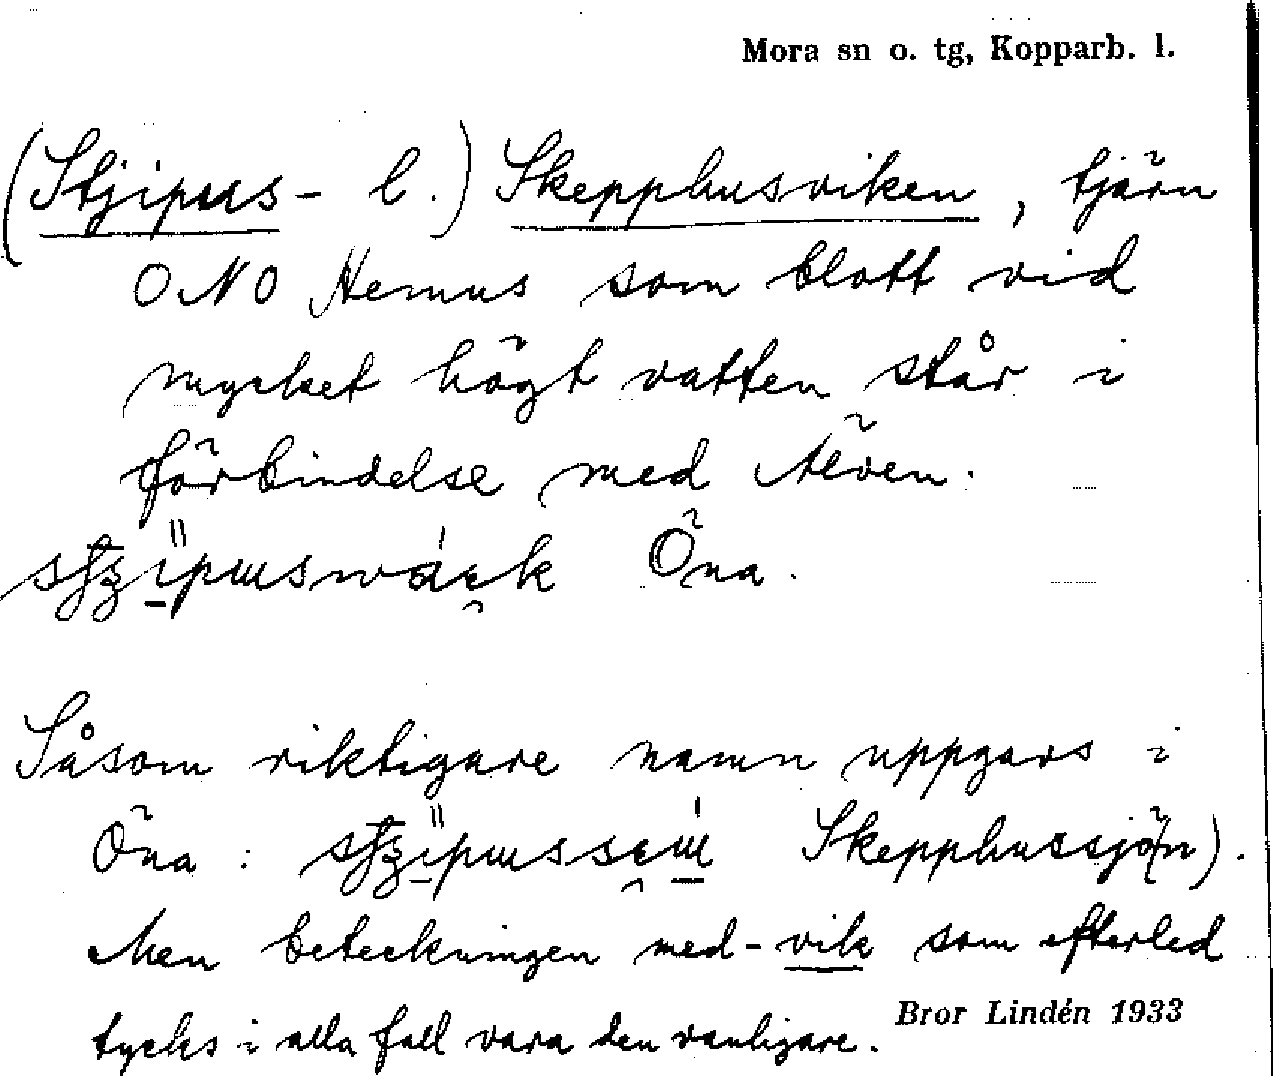 Mora sn o. tg, Kopparb. l.
(Stjipus- l.) Skepphusviken, tjärn
ONO Hemus som blott vid
mycket högt vatten står i
förbindelse med Älven.
Öna.
Såsom riktigare namn uppgavs i
Öna: Skepphussjö(n).
Men beteckningen med -vik som efterled
tycks i alla fall vara den vanligare.
Bror Lindén 1933